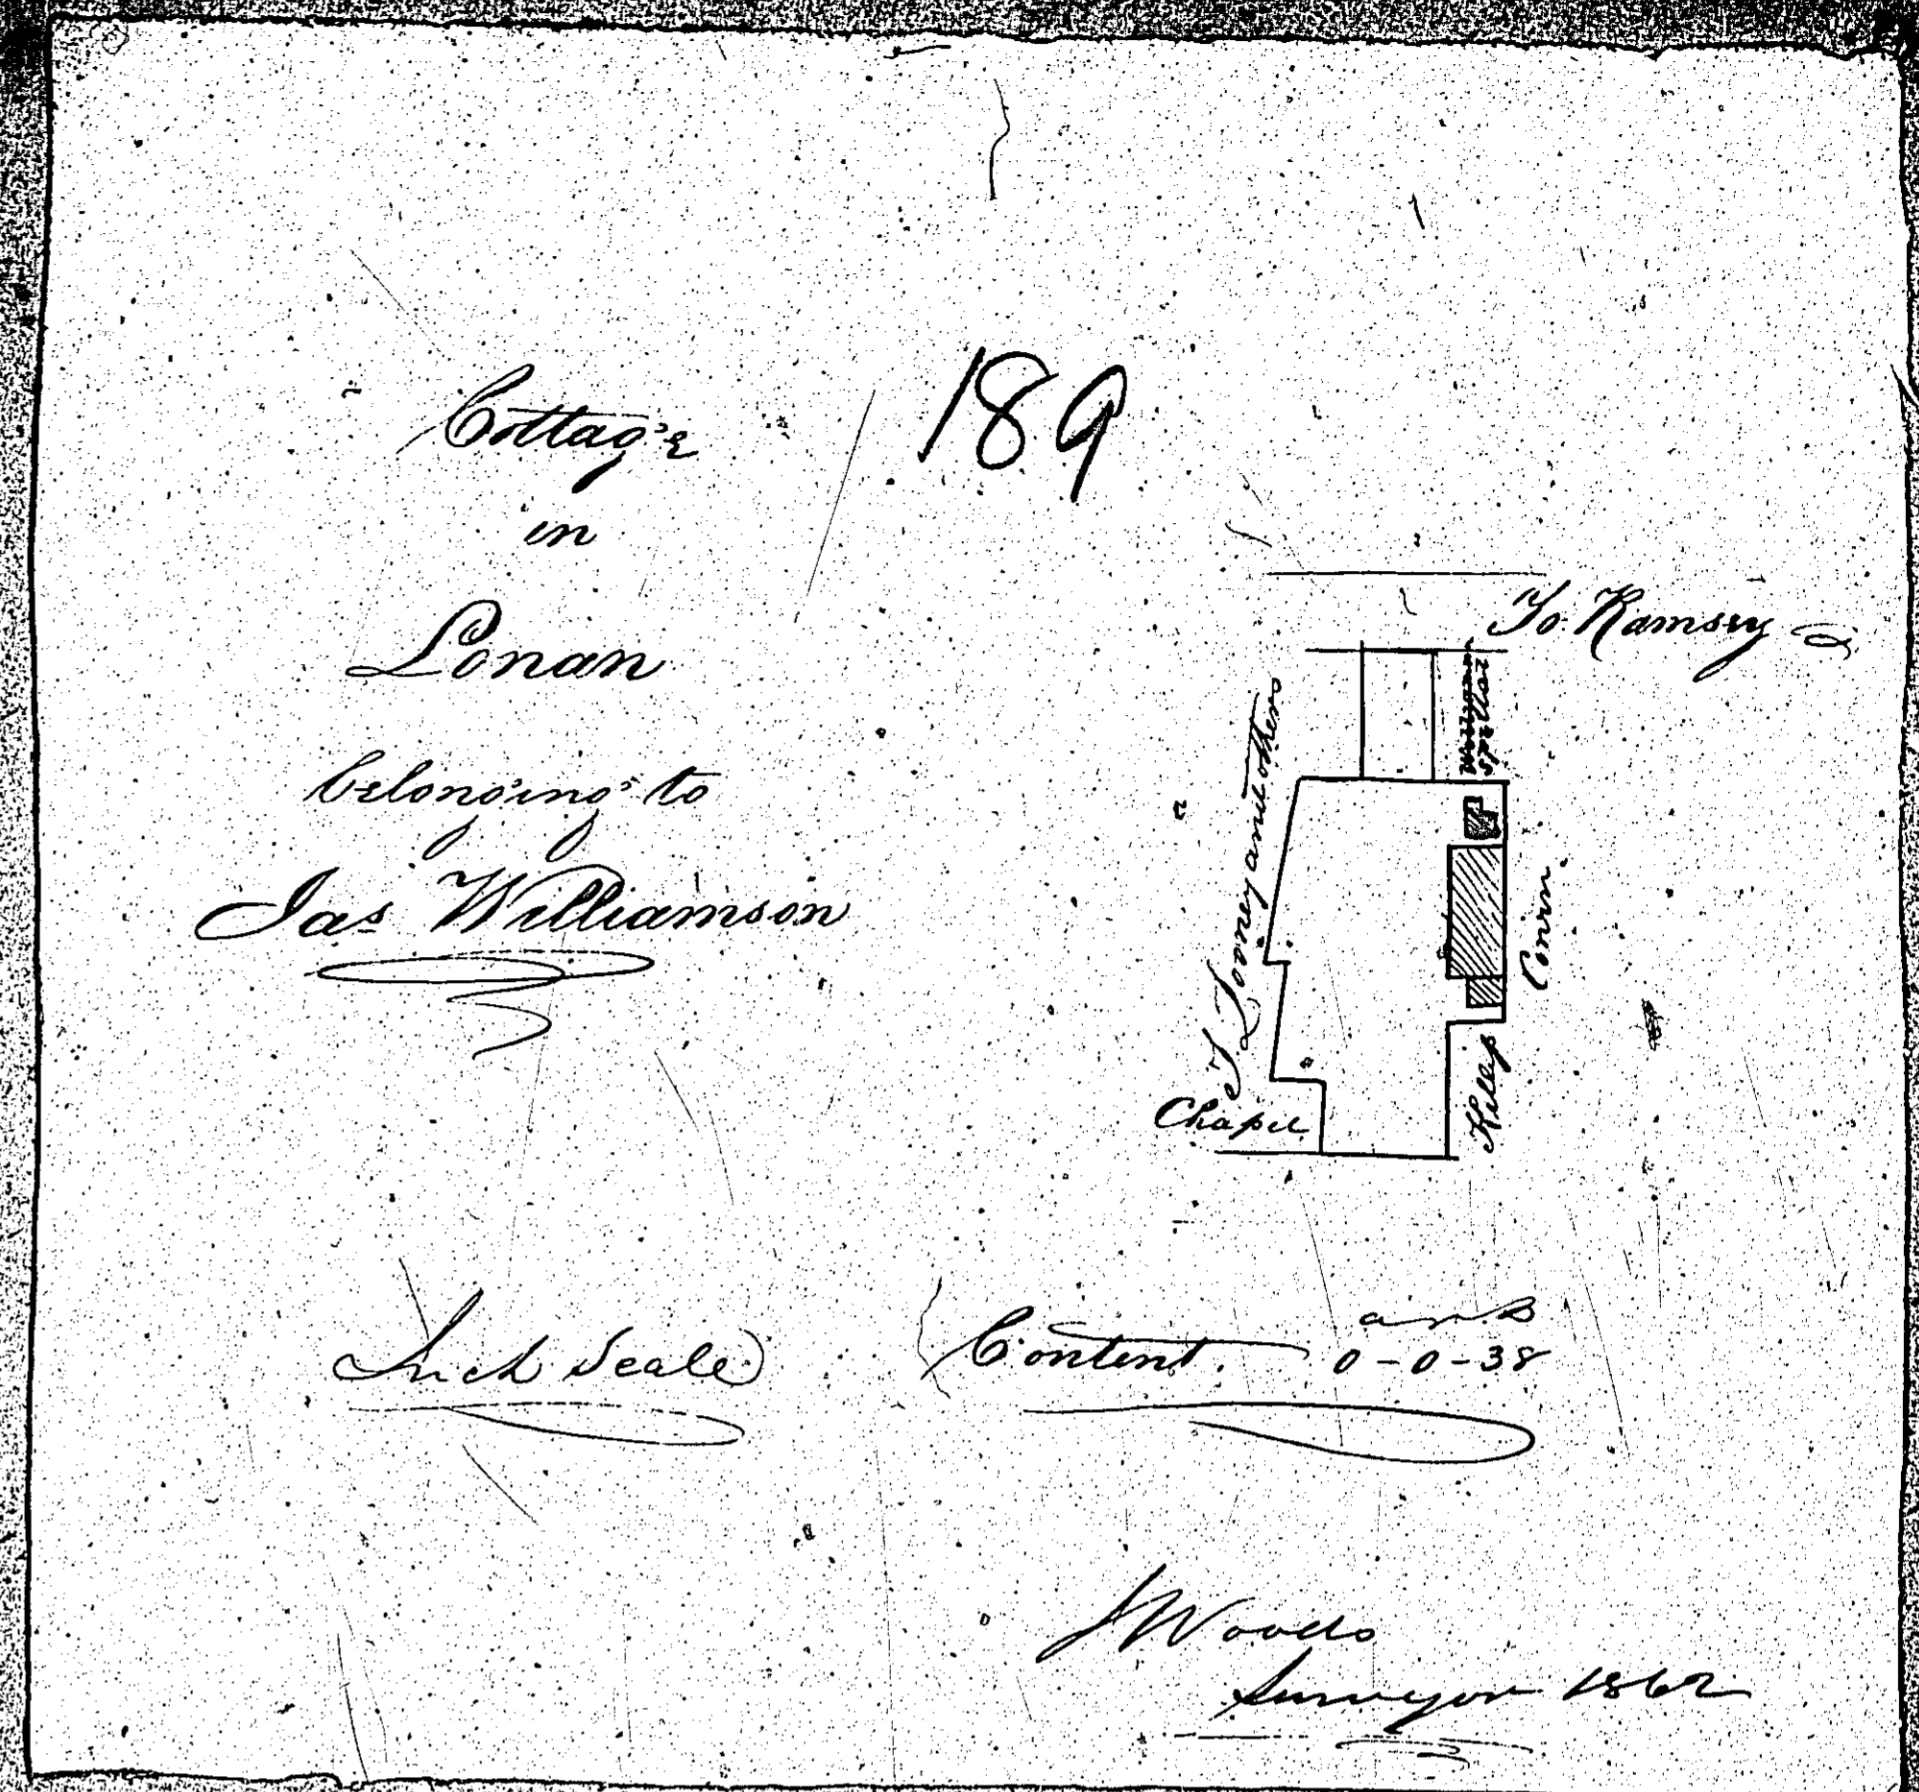 189
Cottage
in
Lonan
belonging to
Jas Williamson
To Ramsey
T Looney and others
Corrin
Killip
Chapel
Inch Scale
Content. a r p
0-0-38
J Woods
Surveyor 1862